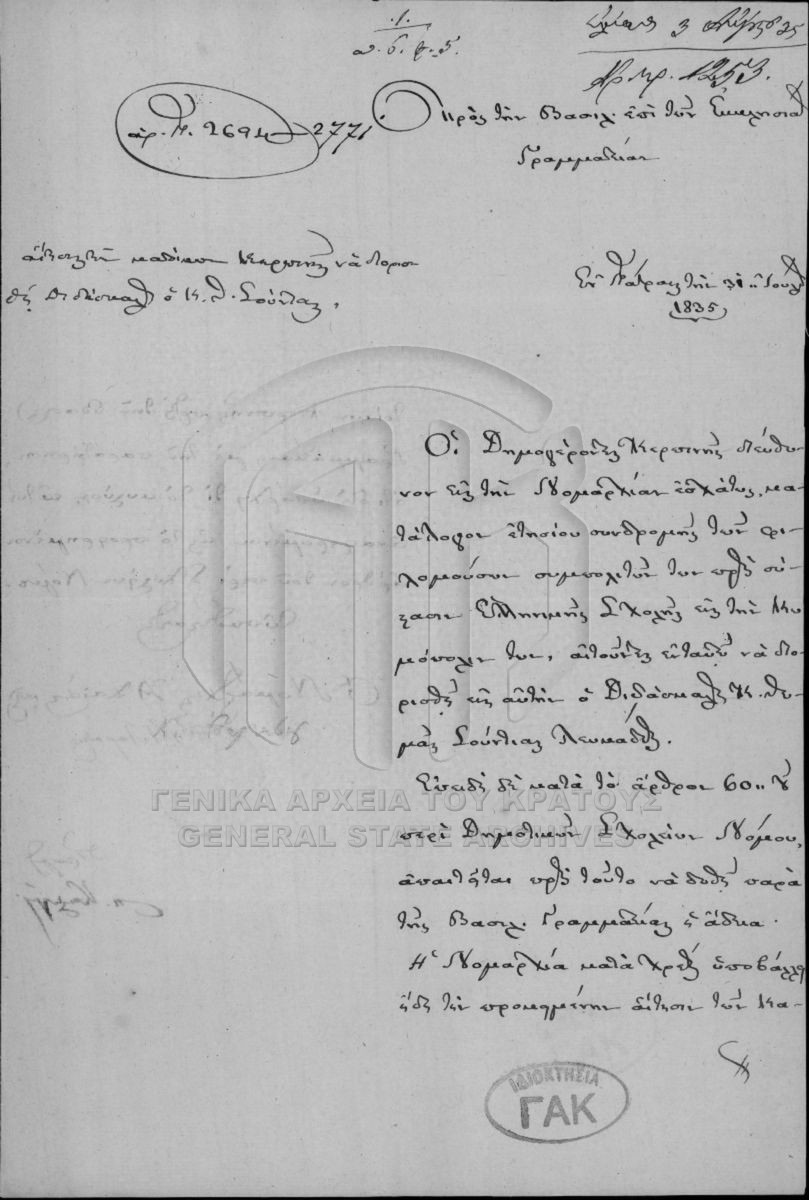 .1.
3 Αὐγούσ 35
Ἀρ. πρ. 1253.
ἀρ. 2694 2771
Πρὸς τὴν Βασιλ. ἐπὶ τῶν Ἐκκλησιασ
Γραμματείαν
αἴτησις τῶν κατοίκων Κερπινῆς νὰ διορισ
θῇ διδάσκαλος ὁ Κ. Θ. Σούντιας.
Ἐν Πάτραις τὴν 31 Ἰουλίου
1835
Οἱ Δημογέροντες Κερπινῆς διεύθυ
νον εἰς τὴν Νομαρχίαν ἐσχάτως, κα
τάλογον ἐτησίου συνδρομῆς τῶν φι
λομούσων συμπολιτῶν των πρὸς σύ
στασιν Ἑλληνικῆς Σχολῆς εἰς τὴν Κω
μόπολίν των, αἰτοῦντες ἐνταυτῷ νὰ διο
ρισθῇ εἰς αὐτὴν ὁ Διδάσκαλος Κ. Θω
μᾶς Σούντιας Λευκάδιος.
Ἐπειδὴ δὲ κατὰ τὸ ἄρθρον 60 τοῦ
περὶ Δημοτικῶν Σχολείων Νόμου,
ἀπαιτεῖται πρὸς τοῦτο νὰ δοθῇ παρὰ
τῆς Βασιλ. Γραμματείας ἡ ἄδεια.
Ἡ Νομαρχία κατὰ χρέος ὑποβάλλει
ἤδη τὴν προκειμένην αἴτησιν τῶν Κα-
ΓΕΝΙΚΑ ΑΡΧΕΙΑ ΤΟΥ ΚΡΑΤΟΥΣ
GENERAL STATE ARCHIVES
ΙΔΙΟΚΤΗΣΙΑ
ΓΑΚ